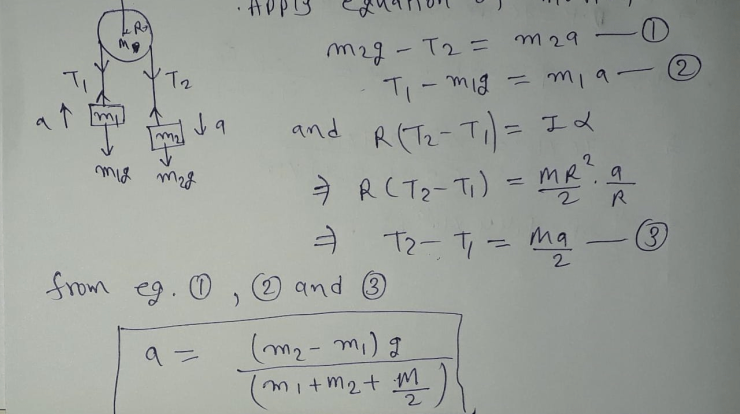 Apply equation of
R
M
T₁
T₂
a ↑ m₁
m₂ ↓ a
m₁g
m₂g
m₂g - T₂ = m₂a — ①
T₁ - m₁g = m₁a — ②
and R(T₂ - T₁) = I α
⇒ R(T₂ - T₁) = MR²/2 · a/R
⇒ T₂ - T₁ = Ma/2 — ③
from eg. ①, ② and ③
a = (m₂ - m₁)g / (m₁ + m₂ + M/2)